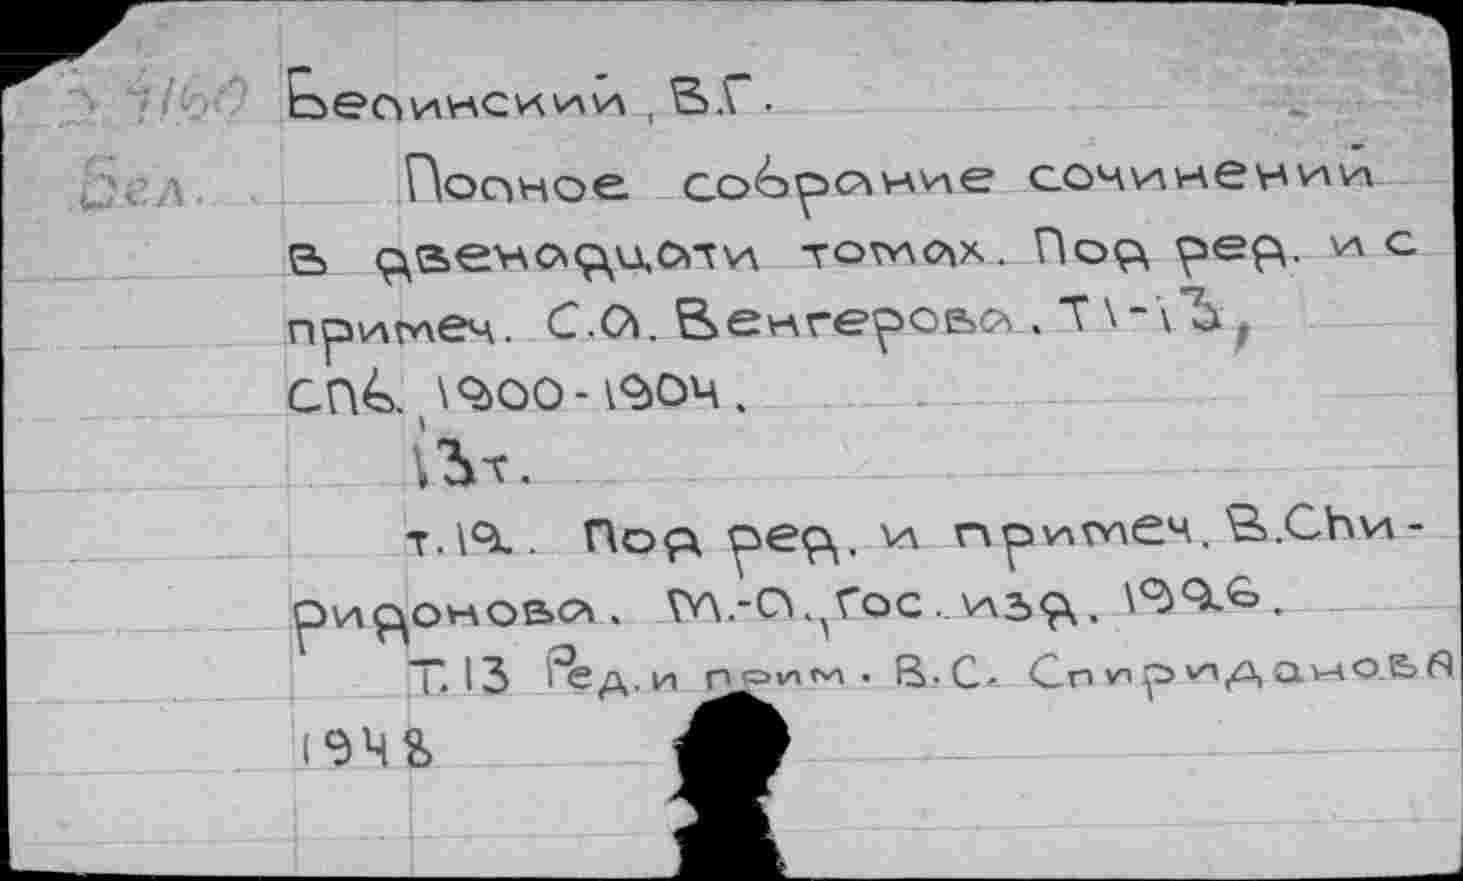 Белинский, В.Г.
Бел. Полное собрание сочинений
в двенадцати томах. Под ред. и с
примеч. С.А. Венгерова. Т 1-13,
СПб. 1900-1904.
13т.
т.12. Под ред. и примеч. В.Спи-
ридонова. М.-Л., Гос. изд. 1926.
Т. 13 Ред. и прим. В.С. Спиридонова
1948